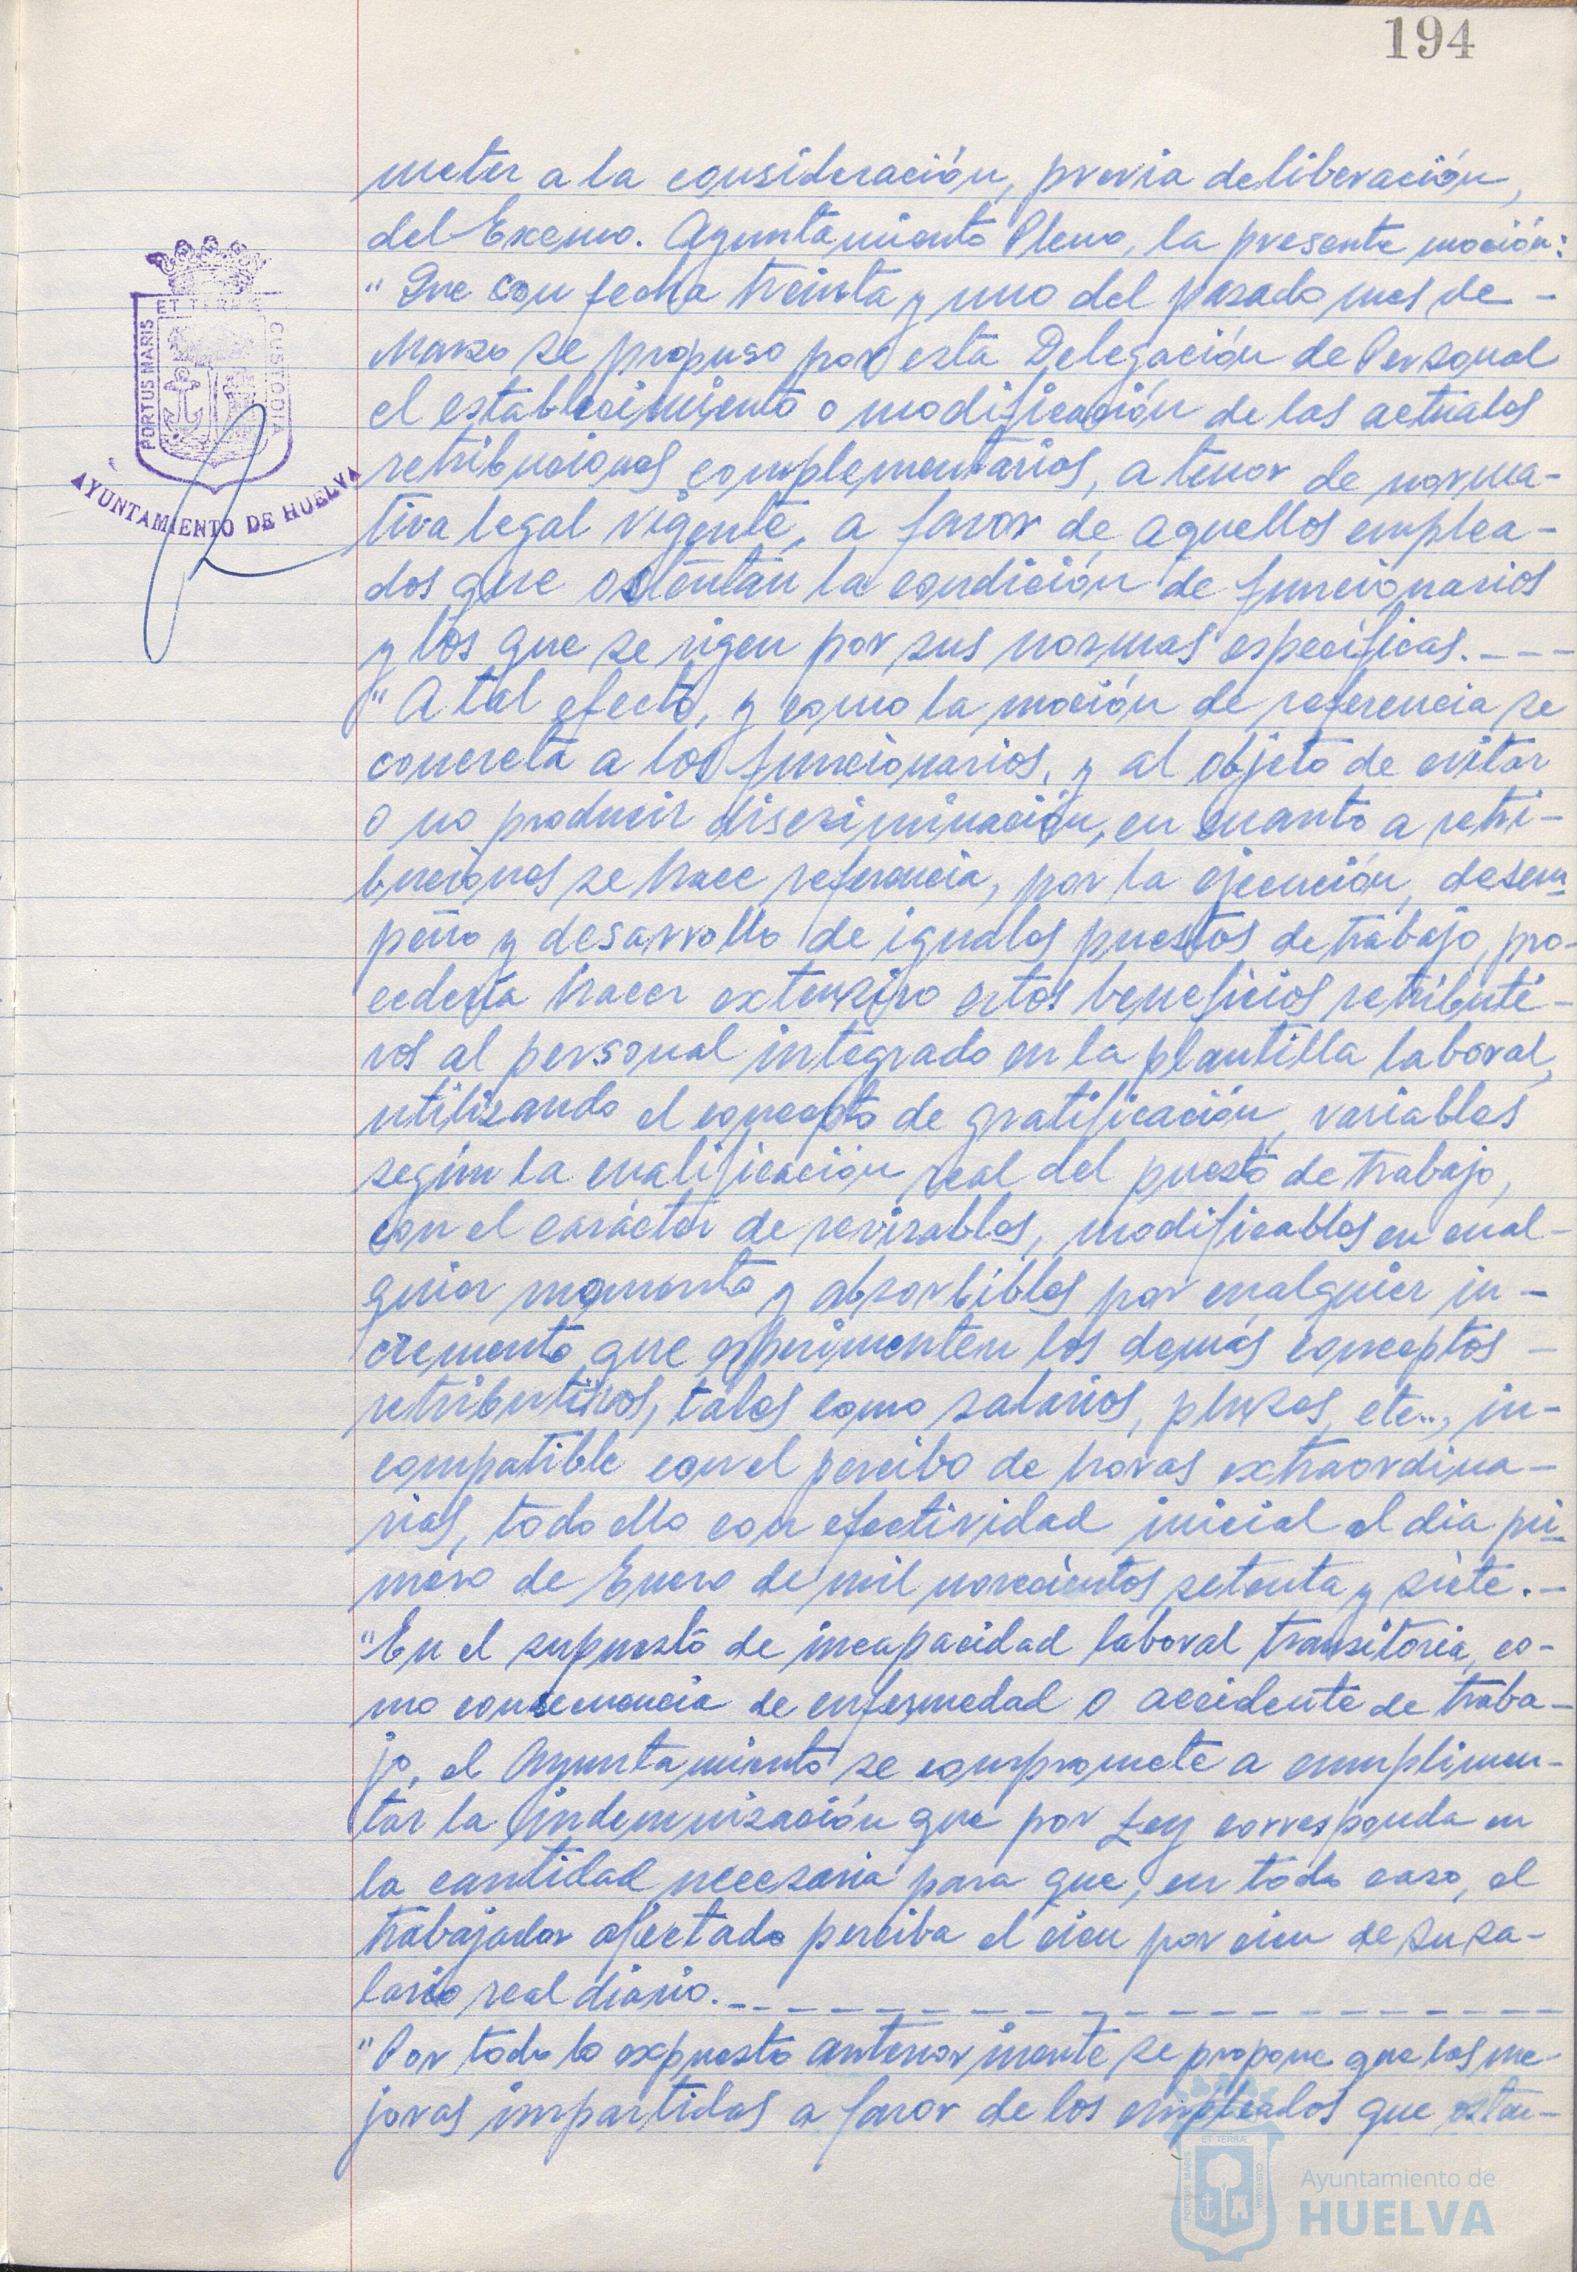 194
meter a la consideración, previa deliberación,
del Excmo. Ayuntamiento Pleno, la presente moción:
"Que con fecha treinta y uno del pasado mes de -
Marzo se propuso por esta Delegación de Personal
el establecimiento o modificación de las actuales
retribuciones complementarias, a tenor de norma-
tiva legal vigente, a favor de aquellos emplea-
dos que ostentan la condición de funcionarios
y los que se rigen por sus normas específicas. - - -
"A tal efecto, y como la moción de referencia se
concreta a los funcionarios, y al objeto de evitar
o no producir discriminación, en cuanto a retri-
buciones se hace referencia, por la ejecución, desem-
peño y desarrollo de iguales puestos de trabajo, pro-
cedería hacer extensivo estos beneficios retributi-
vos al personal integrado en la plantilla laboral,
utilizando el concepto de gratificación, variables
según la cualificación real del puesto de trabajo,
con el carácter de revisables, modificables en cual-
quier momento y absorbibles por cualquier in-
cremento que experimenten los demás conceptos -
retributivos, tales como salarios, pluses, etc.., in-
compatible con el percibo de horas extraordina-
rias, todo ello con efectividad inicial el dia pri-
mero de Enero de mil novecientos setenta y siete. -
"En el supuesto de incapacidad laboral transitoria, co-
mo consecuencia de enfermedad o accidente de traba-
jo, el Ayuntamiento se compromete a cumplimen-
tar la indemnización que por Ley corresponda en
la cantidad necesaria para que, en todo caso, el
trabajador afectado perciba el cien por cien de su sa-
lario real diario. - - - - - - - - - - - - - - - - -
"Por todo lo expuesto anteriormente se propone que las me-
joras impartidas a favor de los empleados que osten-
PORTUS MARIS
ET TERRAE
CUSTODIA
AYUNTAMIENTO DE HUELVA
PORTUS MARIS
ET TERRAE
CUSTODIA
Ayuntamiento de
HUELVA